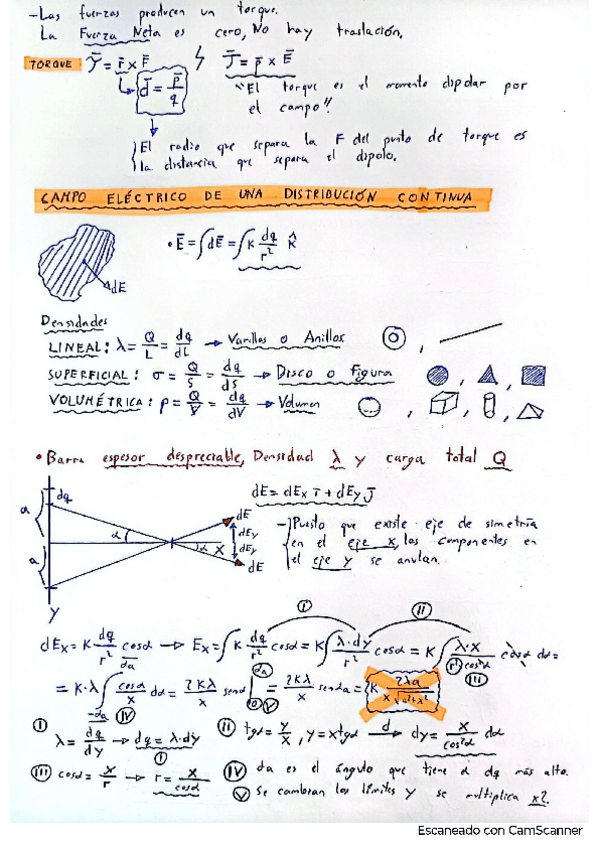 -Las fuerzas producen un torque.
La Fuerza Neta es cero, No hay traslación.
TORQUE τ̄ = r̄ x F̄ τ̄ = p̄ x Ē
d̄ = p̄/q
"El torque es el momento dipolar por
el campo"
El radio que separa la F del punto de torque es
la distancia que separa el dipolo.
CAMPO ELÉCTRICO DE UNA DISTRIBUCIÓN CONTINUA
• Ē = ∫dĒ = ∫K dq/r² R̂
dE
Densidades
LINEAL: λ = Q/L = dq/dL → Varillas o Anillos
SUPERFICIAL: σ = Q/S = dq/dS → Disco o Figura
VOLUMÉTRICA: ρ = Q/V = dq/dV → Volumen
• Barra espesor despreciable, Densidad λ y carga total Q
dE = dEx i + dEy j
dq
a
a
α
α
X
dE
dEy
dEy
dE
Y
-Puesto que existe eje de simetría
en el eje x, las componentes en
el eje y se anulan.
I II
dEx = K dq/r² cosα → Ex = ∫K dq/r² cosα = K∫ λ·dy/r² cosα = K∫
III
= K·λ ∫ cosα/x dα = 2Kλ/x senα = 2Kλ/x senαa = 2K
IV V
I λ = dq/dy → dq = λ·dy
II tgα = y/x, y = x tgα d→ dy = x/cos²α dα
III cosα = x/r → r = x/cosα
IV αa es el ángulo que tiene el dq más alto.
V Se cambian los límites y se multiplica x2.
Escaneado con CamScanner